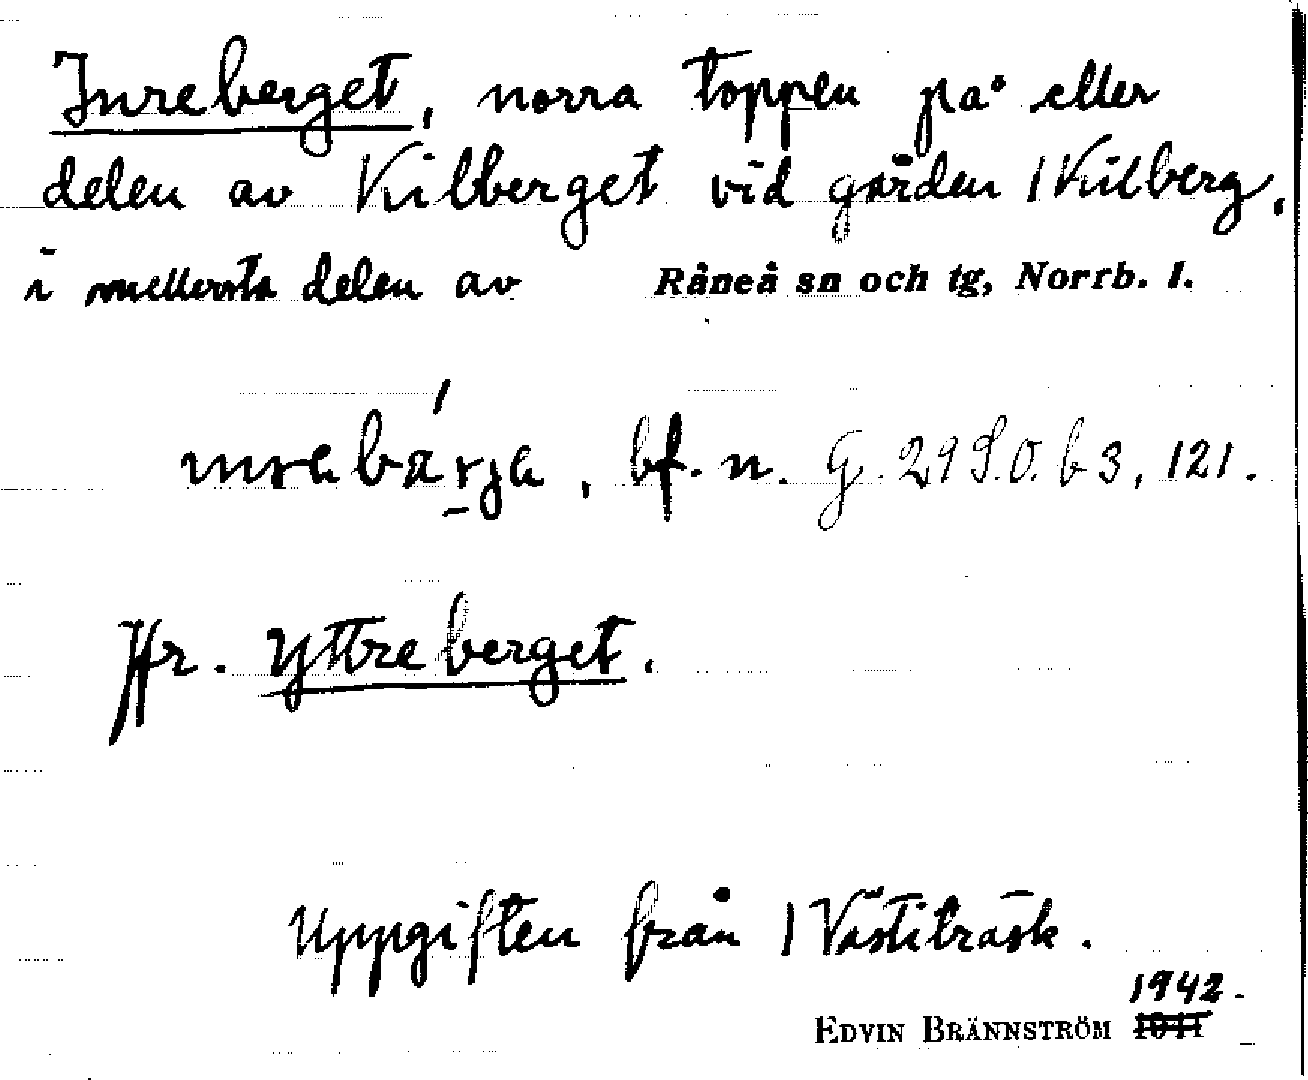 Inreberget, norra toppen på eller
delen av Kilberget vid gården 1 Kilberg,
i mellersta delen av Råneå sn och tg, Norrb. l.
bf. n. G. 29 S.O. b 3, 121.
Jfr. Yttreberget.
Uppgiften från 1 Västiträsk.
1942.
EDVIN BRÄNNSTRÖM 1941